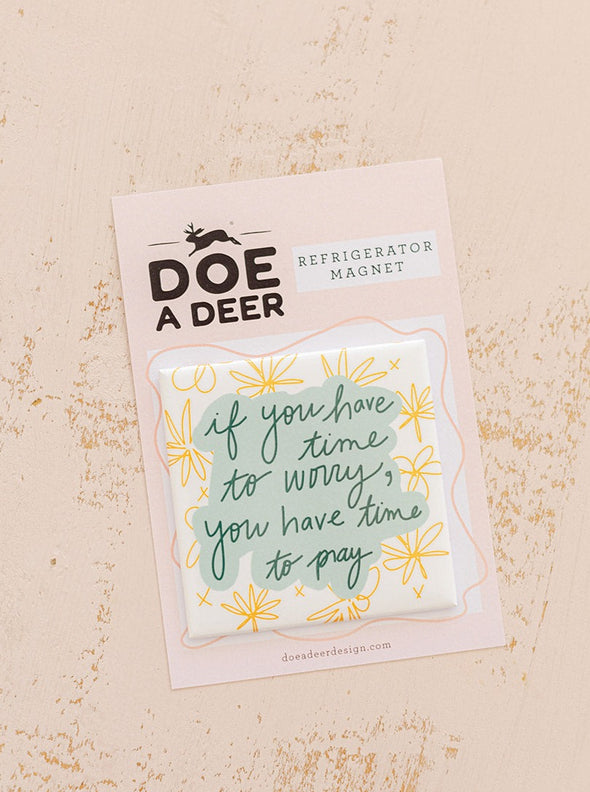 DOE
A DEER
®
REFRIGERATOR
MAGNET
if you have
time
to worry,
you have time
to pray
doeadeerdesign.com